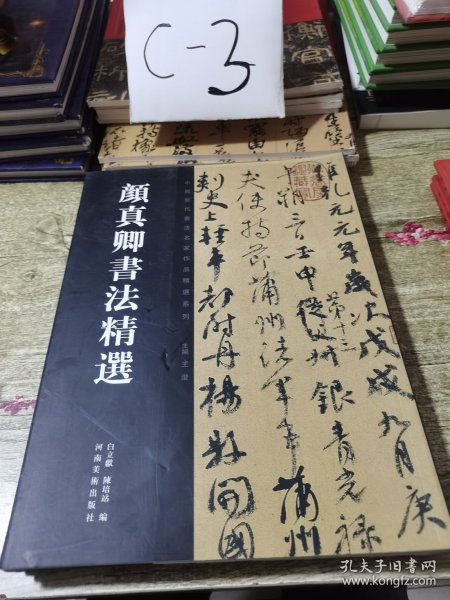 C-3
顔真卿書法精選
中國歷代書法名家作品精選系列
主編 王澄
白立獻 陳培站 編
河南美術出版社
維乾元元年歲次戊戌九月庚
午朔三日壬申第十三叔銀青光祿
夫使持節蒲州諸軍事蒲州
刺史上輕車都尉丹楊縣開國
孔夫子旧书网
book.kongfz.com